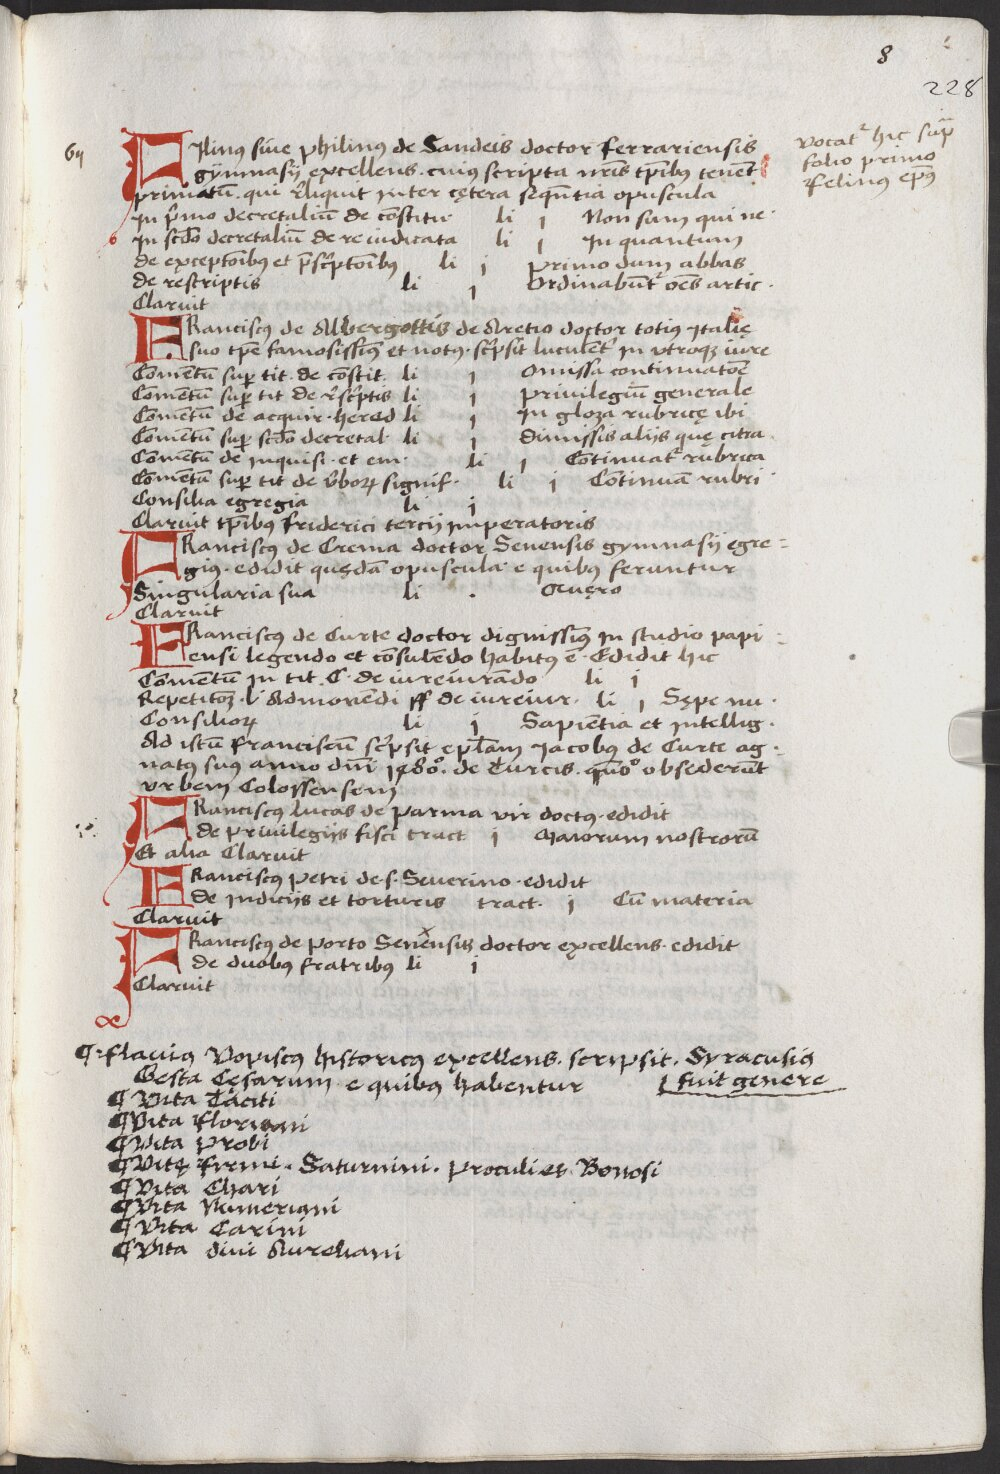 8
228
Filinꝰ siue philinꝰ de Sandeis doctor ferrariensis
gymnasij excellens. cuiꝰ scripta nr̄is tꝑibus tenent
primatū. qui rͤliquit inter cętera seqn̄tia opuscula
vocatʳ hic sup̄
folio primo
Felinꝰ ep̄ꝰ
In pͥmo decretaliū de cōstitu· li j Non sum qui ne·
In scd̄o decretaliū de re iudicata li j In quantum
de exceptōibꝰ et p̄scͥptōibꝰ li j primo dum abbas
de rescriptis li j Ordinabūtʳ oēs artic·
Claruit
FRanciscꝰ de Albergottis de Aretio doctor totiꝰ Italię
suo tꝑe famosissimꝰ et notꝰ· scͥpsit luculenter in vtroqꝫ iure
Cōmentū suꝑ tit· de cōstit· li j Omissa continuatōe
Cōmentū suꝑ tit de rͤscͥptis li j priuilegiū generale
Cōmentū de acquir· hered li j In gloza rubricę ibi
Cōmentū suꝑ scd̄o decretal li j dimissis alijs quę citra
Cōmentū de inquisi· et em· li j Cōtinuatʳ rubrica
Cōmentū suꝑ tit de vͤboꝝ signif· li j Cōtinuā rubri
Consilia egregia li j
Claruit tꝑibus friderici tercij imperatoris
FRanciscꝰ de Crema doctor Senensis gymnasij egre=
giꝰ· edidit quędā opuscula e quibꝰ feruntur
Singularia sua li · Quęro
Claruit
FRanciscꝰ de Curte doctor dignissimꝰ in studio papi=
ensi legendo et cōsulēdo habitꝰ ē· Edidit hic
Cōmentū in tit· C· de iureiurādo li j
Repetitōꝫ l· Admonēdi ff de iureiur· li j Sępe nu·
Consilioꝝ li j Sapiētia et intellig·
Ad istū Franciscū scͥpsit ep̄lam Jacobus de Curte ag·
natꝰ suꝰ anno dn̄i 1480· de Turcis· quō obsederūt
vrbem Colossensem
FRanciscꝰ lucas de parma vir doctꝰ· edidit
de priuilegijs fisci tract j Maiorum nostrorū
Et alia Claruit
FRanciscꝰ petri de·s· Seuerino· edidit
de indicijs et torturis tract· j Cū materia
Claruit
FRanciscꝰ de porto Senēnsis doctor excellens· edidit
de duobꝰ fratribꝰ li j
Claruit
¶· flauiꝰ Vopiscꝰ historicꝰ excellens· scripsit· Syracusiꝰ
fuit genere
Gesta Cęsarum· e quibꝰ habentur
¶ Vita Taciti
¶ Vita floriani
¶ Vita probi
¶ Vitę firmi· Saturnini· proculi et Bonosi
¶ Vita Chari
¶ Vita Numeriani
¶ Vita Carini
¶ Vita diui Aureliani